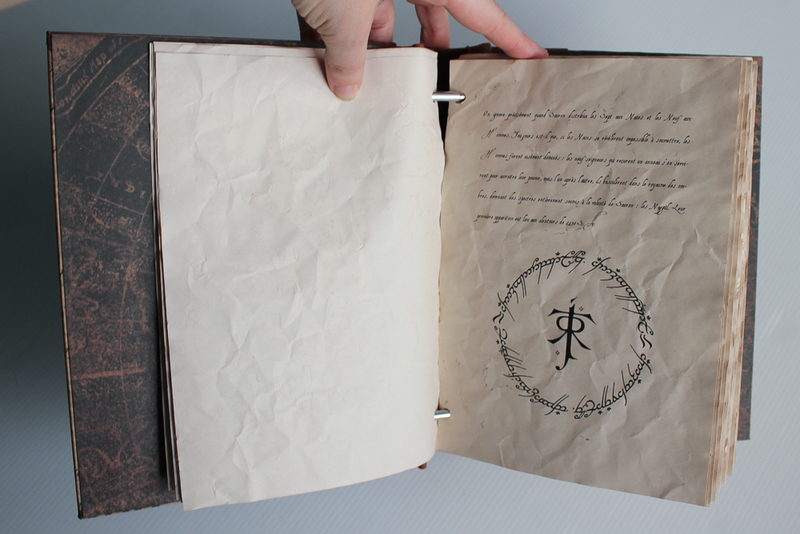 On ignore précisément quand Sauron distribua les Sept aux Nains et les Neuf aux
Hommes. Toujours est-il que, si les Nains se révélèrent impossible à soumettre, les
Hommes furent aisément dominés : les neuf seigneurs qui reçurent un anneau s'en servi-
rent pour accroitre leur pouvoir, mais l'un après l'autre, ils basculèrent dans le royaume des om-
bres, devenant des spectres entièrement soumis à la volonté de Sauron : les Nazgûl. Leur
première apparition eut lieu aux alentours de
Map of